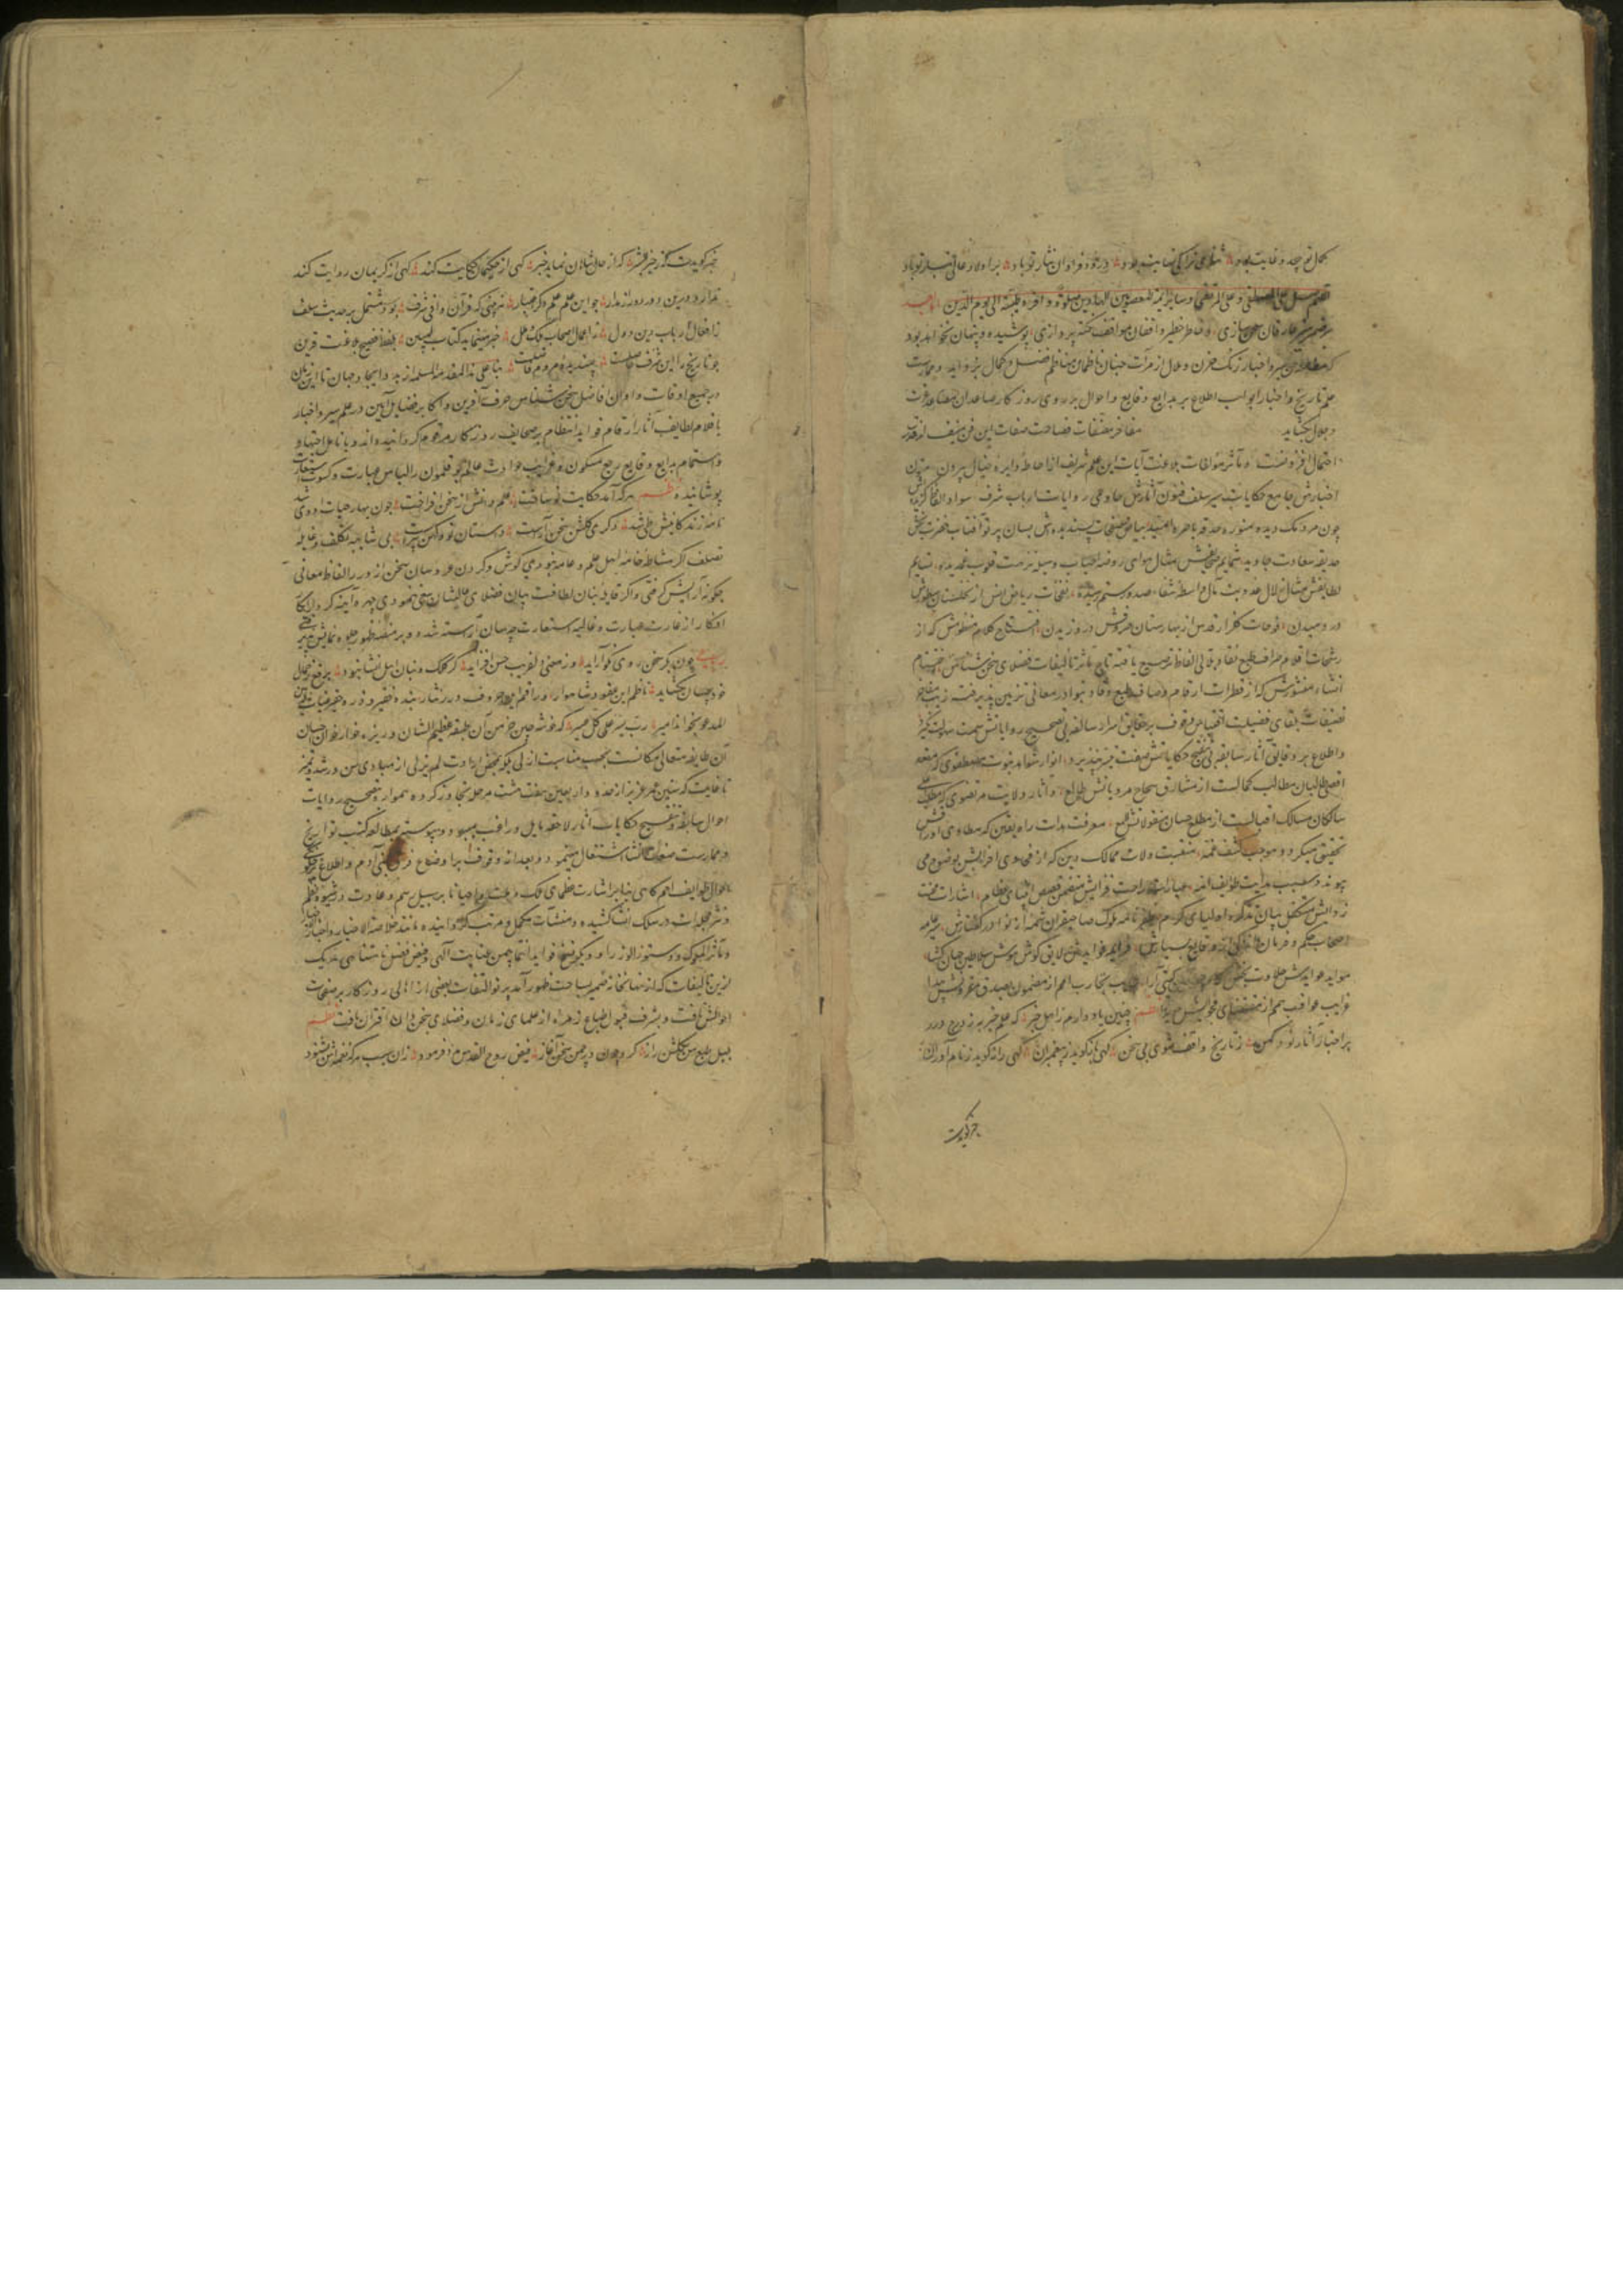 کمال تو بیحد و غایت بود شفاعی ترا بی نهایت بود درود فراوان نثار تو باد بر اولاد عالی تبار تو باد
اللهم صل علی المصطفی و علی المرتضی و سایر ائمة المعصومین الهادین صلوة وافرة طیبة الی یوم الدین اما بعد
بر ضمیر منیر عارفان سخن سازی و خاطر خطیر واقفان مواقف نکته پردازی پوشیده و پنهان نخواهد بود
که مطالعه سیر و اخبار زنک حزن و ملال از مرآت جنان ناظمان مناظم فضل و کمال بزداید و ممارست
علم تاریخ و اخبار ابواب اطلاع بر بدایع وقایع و احوال بر روی روزکار صاعدان مصاعد عزت
و جلال بکشاید مفاخر مصنفات فصاحت صفات این فن منیف از
احتمال افزونست و مآثر مؤلفات بلاغت آیات این علم شریف از احاطه دایره خیال بیرون
اخبارش جامع حکایات سیر سلف فنون آثارش حاوی روایات ارباب شرف سواد الفاظ
چون مردمک دیده منور حدقه باصره بیاض صفحات پسندیده اش بسان پرتو آفتاب
حدیقه سعادت جاوید مثال هوای روضه وسیله نزهت قلوب نسایم
لطایفش مثال زلال عذوبت مآل واسطه شفاء صدور ریاض انس از
در دمیدن فوحات کلزار قدس از بهارستان در وزیدن افتتاح کلام منظومش که از
رشحات اقلام طبع نقاد بلالی الفاظ ترصیع یافته تاج تألیفات فضلای سخن شناس اختتام
انشاء منثورش که از قطرات ارقام طبع وقاد در معانی تزیین پذیرفته
تصنیفات فضیلت اقتباس وقوف بر حقایق اسرار سالفه بی تصحیح روایاتش سمت
و اطلاع بر دقایق آثار سابقه بی تنقیح حکایاتش صفت تیسر نپذیرد انوار شواهد نبوت مصطفوی که مقصد
اقصی طالبان مطالب کمالست از مشارق صحاح مرویاتش طالع و آثار ولایت مرتضوی که مطلب
سالکان مسالک اقبالست از مطلع حسان منقولاتش لامع معرفت هدات راه یقین که
تحقیق میکردد و موجب کشف غمه منقبت ولات ممالک دین که از فحوای بوضوح می
پیوندد سبب هدایت طوایف امه عبارات راحت فزایش متضمن قصص انبیای عظام اشارات محنت
زدایش متکفل بیان تذکره اولیای کرام ظفر نامه ملوک صاحبقران شمه از نوادر کفتارش
اصحاب حکم و فرمان از وقایع بسیارش فراید فوایدش لایق کوش هوش سلاطین جهان کشا
موايد عوایدش حلاوت بخش کام کیتی آرا تجارب امم از مضمون صدق مقرونش پیدا
غرایب عواقب همم از مقتضای فحوایش هویدا نظم چنین یاد دارم ز اهل خبر که علم خبر به ز درج درر
بر اخبار آثار نو و کهن ز تاریخ واقف شوی بی سخن کهی باز کوید ز پیغمبران کهی راز کوید ز نام آوران
خبر کویدت
خبر کویدت از خیر البشر که از حال شاهان نماید خبر کهی از حکیمان حکایت کند کهی از کریمان روایت کند
ندارد درین دور دور از مدار جو این علم علم دکر اعتبار نه بینی که قرآن وافی شرف بود مشتمل بر حدیث سلف
ز افعال ارباب دین و دول ز اعمال اصحاب ملک و ملل خبر مینماید کتاب مبین بلفظ فصیح بلاغت قرین
جو تاریخ را این شرف حاصلست پسندیده مردم فاضلست بنا علی هذا المقدمة المسلمه از بدو ایجاد جهان تا این زمان
در جمیع اوقات و اوان افاضل سخن شناس حرف آفرین و اکابر فضایل آیین در علم سیر و اخبار
باقلام لطایف آثار ارقام فواید انتظام بر صحایف روزکار مرقوم کردانیده اند و بانامل اجتهاد
و اهتمام بدایع وقایع ربع مسکون و غرایب حوادث عالم بوقلمون را لباس عبارت و کسوت استعارت
پوشانیده نظم هر که آمد حکایت نو ساخت علم دانش از سخن افراخت چون بهار حیات او دی شد
نامه زندکانیش طی شد دکری کلشن سخن آراست داستان نو و کهن پیراست بی شایبه تکلف و غایله
تصلف اکر مشاطه خامه اهل علم و عامه نبودی کوش و کردن عروسان سخن از درر الفاظ معانی
چکونه آرایش کرفتی و اکر قابله بنان لطافت بیان فضلای عالیشان سعی ننمودی چهره آینه کردار
افکار از غازه عبارت و غالیه استعارت چسان آراسته شده و بر منصه ظهور جلوه نمایش
بیت چون بکر سخن روی نکو آراید وز معنی دلفریب حسن افزاید کر کلک و بنان اهل انشا نبود برقع ز جمال
خود چسان بکشاید ناظم این عقود شاهوار و راقم این حروف درر نثار بنده فقیر و ذره حقیر غیاث الدین
المدعو بخواند امیر رب یسر علی کل عسیر که خوشه چین خرمن آن طبقه عظیم الشان و ریزه خوار خوان احسان
آن طایفه متعالی مکانست بحسب مناسبت ازلی بلکه بمحض ارادت لم یزلی از مبادی سن رشد و تمیز
تا غایت که سنین عمر عزیز از حدود اربعین هفت هشت مرحله تجاوز کرده همواره بتصحیح روایات
احوال سابقه و تنقیح حکایات آثار لاحقه مایل و راغب میبود و پیوسته بمطالعه کتب تواریخ
و ممارست صفحات انشا اشتغال مینمود و بعد از وقوف بر اوضاع فرق بنی آدم و اطلاع بر
احوال طوایف امم کاهی بنا بر اشارت عظمای ملک و ملت و احیانا بر سبیل رسم و عادت در شیوه نظم
و نثر مجلدات در سلک انشا کشیده و منشآت مکمل و مرتب کردانیده مانند خلاصة الاخبار و اخبار الاخیار
و مآثر الملوک و دستور الوزراء و دیکر نسخ فواید انتما بیمن عنایت الهی و فیض فضل نامتناهی هر یک
ازین تألیفات که از نهانخانه ضمیر بساحت ظهور آمد پرتو التفات بعضی از اعالی روزکار بر صفحات
احوالش تافت و بشرف قبول طباع زمره از علمای زمان و فضلای سخن دان اقتران یافت نظم
بلبل طبع من بکلشن راز کرد چون در چمن سخن آغاز فیض روح القدس مدد فرمود زان سبب هر که نغمه اش بشنود